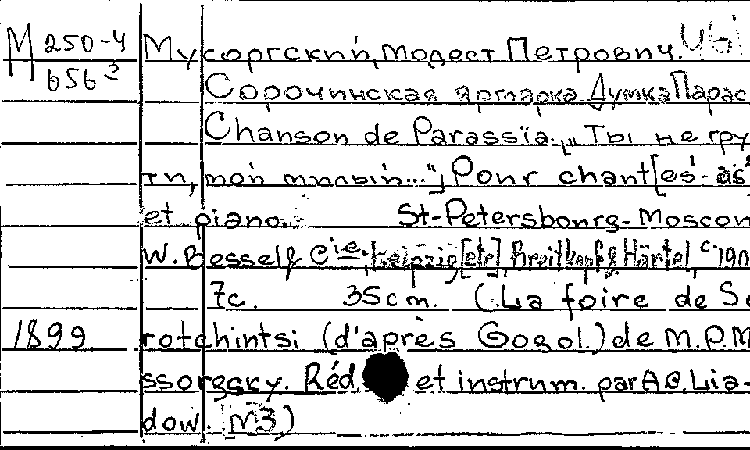 М 250-4 Мусоргский, Модест Петрович.
656² Сорочинская ярмарка. Думка Парас
Chanson de Parassia. „Ты не гру
сти, мой милый..."] Pour chant [es-as²
et piano. St-Petersbourg-Moscou
W. Bessel & Cie; Leipzig [etc] Breitkopf & Härtel, c.190
7c. 35cm. (La foire de So
1899 rotchintsi (d'après Gogol.) de M.P.M
ssorgsky. Réd et instrum. par A
Lia-
dow. №3)